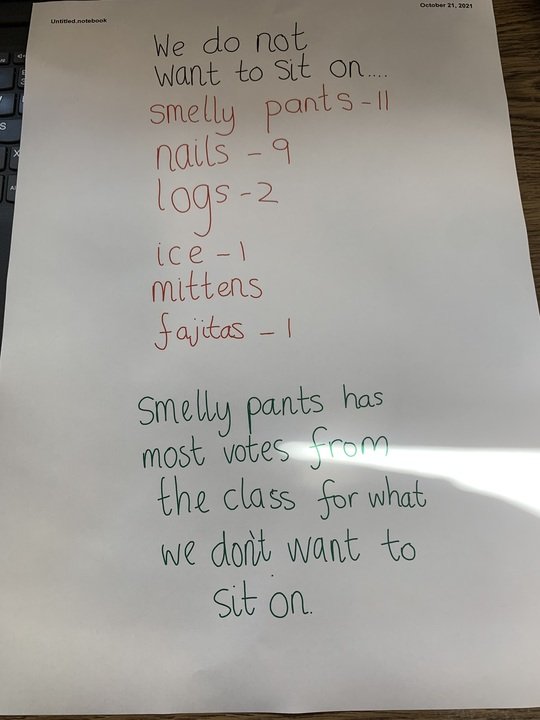 Untitled.notebook
October 21, 2021
We do not
want to sit on....
smelly pants - 11
nails - 9
logs - 2
ice - 1
mittens
fajitas - 1
smelly pants has
most votes from
the class for what
we don't want to
sit on.